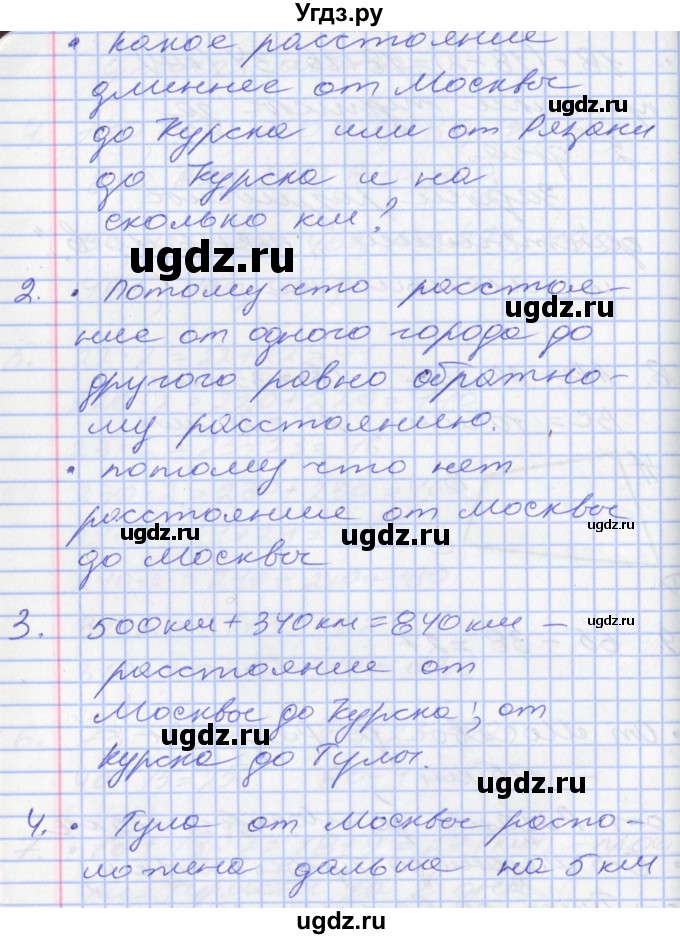 Угдз.ру
• какое расстояние
длиннее от Москвы
ugdz.ru
до Курска или от Рязани
до Курска и на
ugdz.ru
сколько км?
ugdz.ru
2. • Потому что расстоя-
ugdz.ru
ние от одного города до
другого равно обратно-
му расстоянию.
• потому что нет
расстояние от Москвы
ugdz.ru ugdz.ru ugdz.ru
до Москвы
3. 500км + 340км = 840км –
ugdz.ru
расстояние от
Москвы до Курска; от
ugdz.ru
Курска до Тулы.
ugdz.ru
4. • Тула от Москвы распо-
ложена дальше на 5км
ugdz.ru